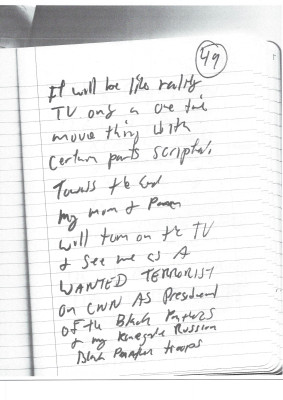 49
It will be like reality
TV only a one time
movie thing with
certain parts scripted.
Towards the end
my mom &
will turn on the TV
& see me as A
WANTED TERRORIST
on CNN AS President
OF the Black Panthers
& my Renegade Russian
Black Panther troops